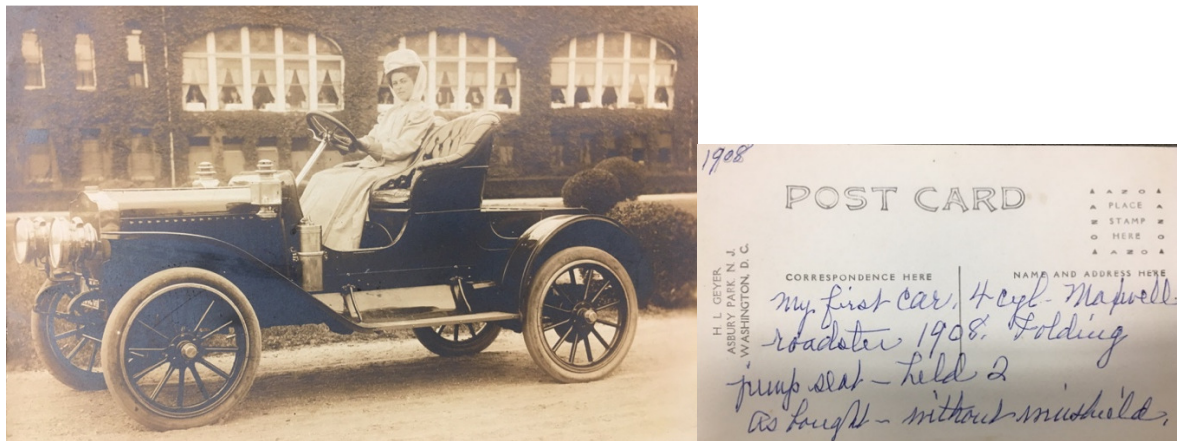 1908
POST CARD
AZO
PLACE
STAMP
HERE
AZO
H. L. GEYER
ASBURY PARK, N. J.
WASHINGTON, D. C.
CORRESPONDENCE HERE
NAME AND ADDRESS HERE
my first car, 4 cyl - Maxwell -
roadster 1908. Folding
jump seat - held 2
As bought - without windshield.